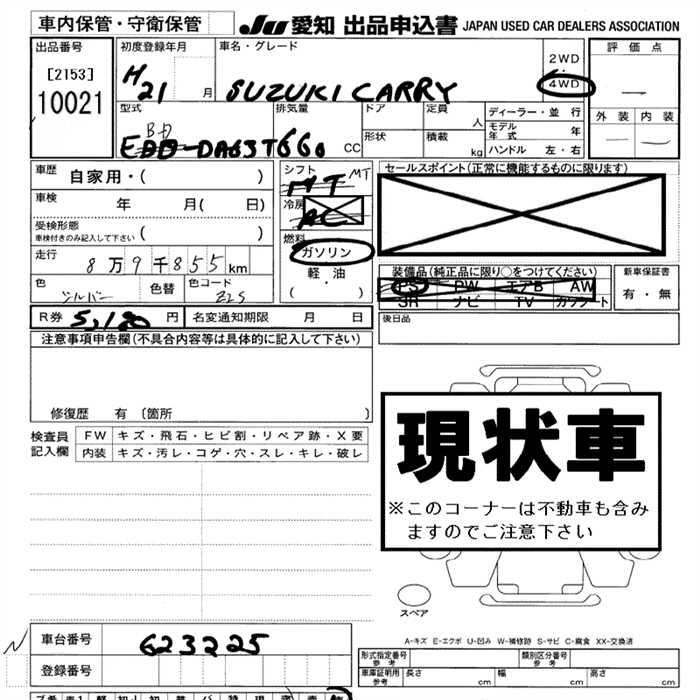 車内保管・守衛保管 JU 愛知 出品申込書 JAPAN USED CAR DEALERS ASSOCIATION
出品番号 [2153] 10021
初度登録年月 H21 月
車名・グレード SUZUKI CARRY
2WD
4WD
評価点 —
外装 内装
— —
型式 EBD-DA63T
排気量 660 cc
ドア
形状
定員 人
積載 kg
ディーラー・並行
モデル年式 年
ハンドル 左・右
車歴 自家用・( )
車検 年 月( 日)
受検形態 車検付きのみ記入して下さい ( )
走行 8万9千855km
色 シルバー 色替 色コード Z2S
シフト MT MT
冷房 AC
燃料
ガソリン
軽油
( ・ )
セールスポイント(正常に機能するものに限ります)
装備品(純正品に限り○をつけてください)
PS PW エアB AW
SR ナビ TV カワシート
新車保証書
有・無
R券 5,180 円 名変通知期限 月 日
後日品
注意事項申告欄(不具合内容等は具体的に記入して下さい)
修復歴 有〔箇所 〕
検査員記入欄
FW キズ・飛石・ヒビ割・リペア跡・X要
内装 キズ・汚レ・コゲ・穴・スレ・キレ・破レ
現状車
※このコーナーは不動車も含み
ますのでご注意下さい
スペア
A-キズ E-エクボ U-凹み W-補修跡 S-サビ C-腐食 XX-交換済
車台番号 623225
登録番号
形式指定番号 参考
類別区分番号 参考
車庫証明用 参考 長さ cm 幅 cm 高さ cm